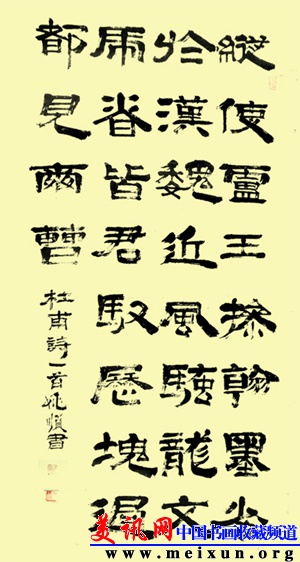 縱使盧王操翰墨劣
於漢魏近風騷龍文
虎脊皆君馭歷塊過
都見爾曹
杜甫詩一首 書
美讯网 中国书画收藏频道
www.meixun.org